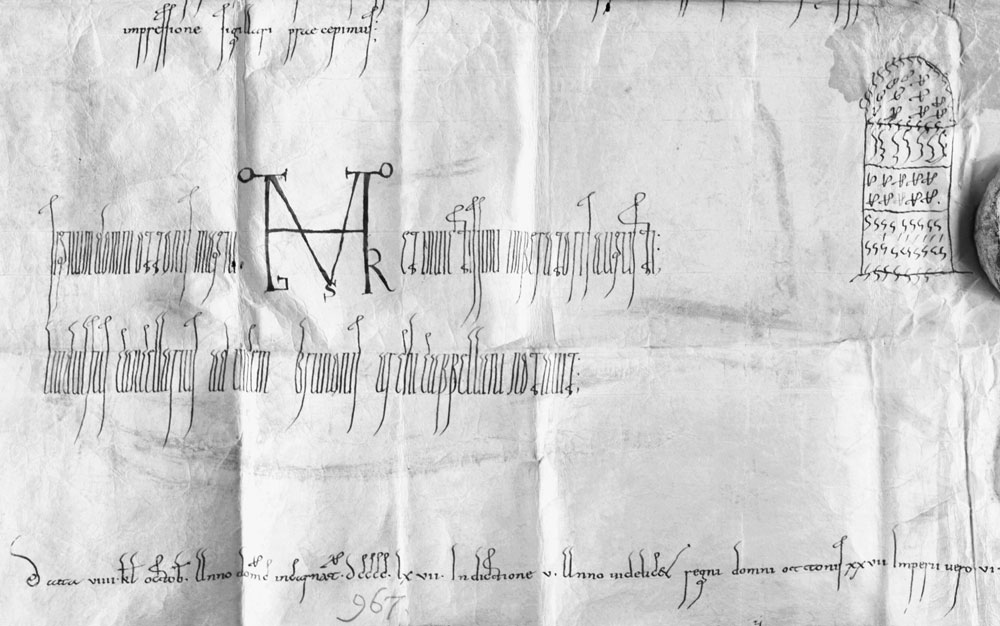 impressione sigillari praecepimus;
Signum domni ottonis magni. et inuictissimi imperatoris augusti;
liudulfus cancellarius ad uicem brunonis archicappellani notauit;
Data viiii kl octob. Anno domc incarnat. dcccc. lxvii. Indictione v. Anno uidelicet regni domni ottonis xxvii Imperii uero vi.
967.